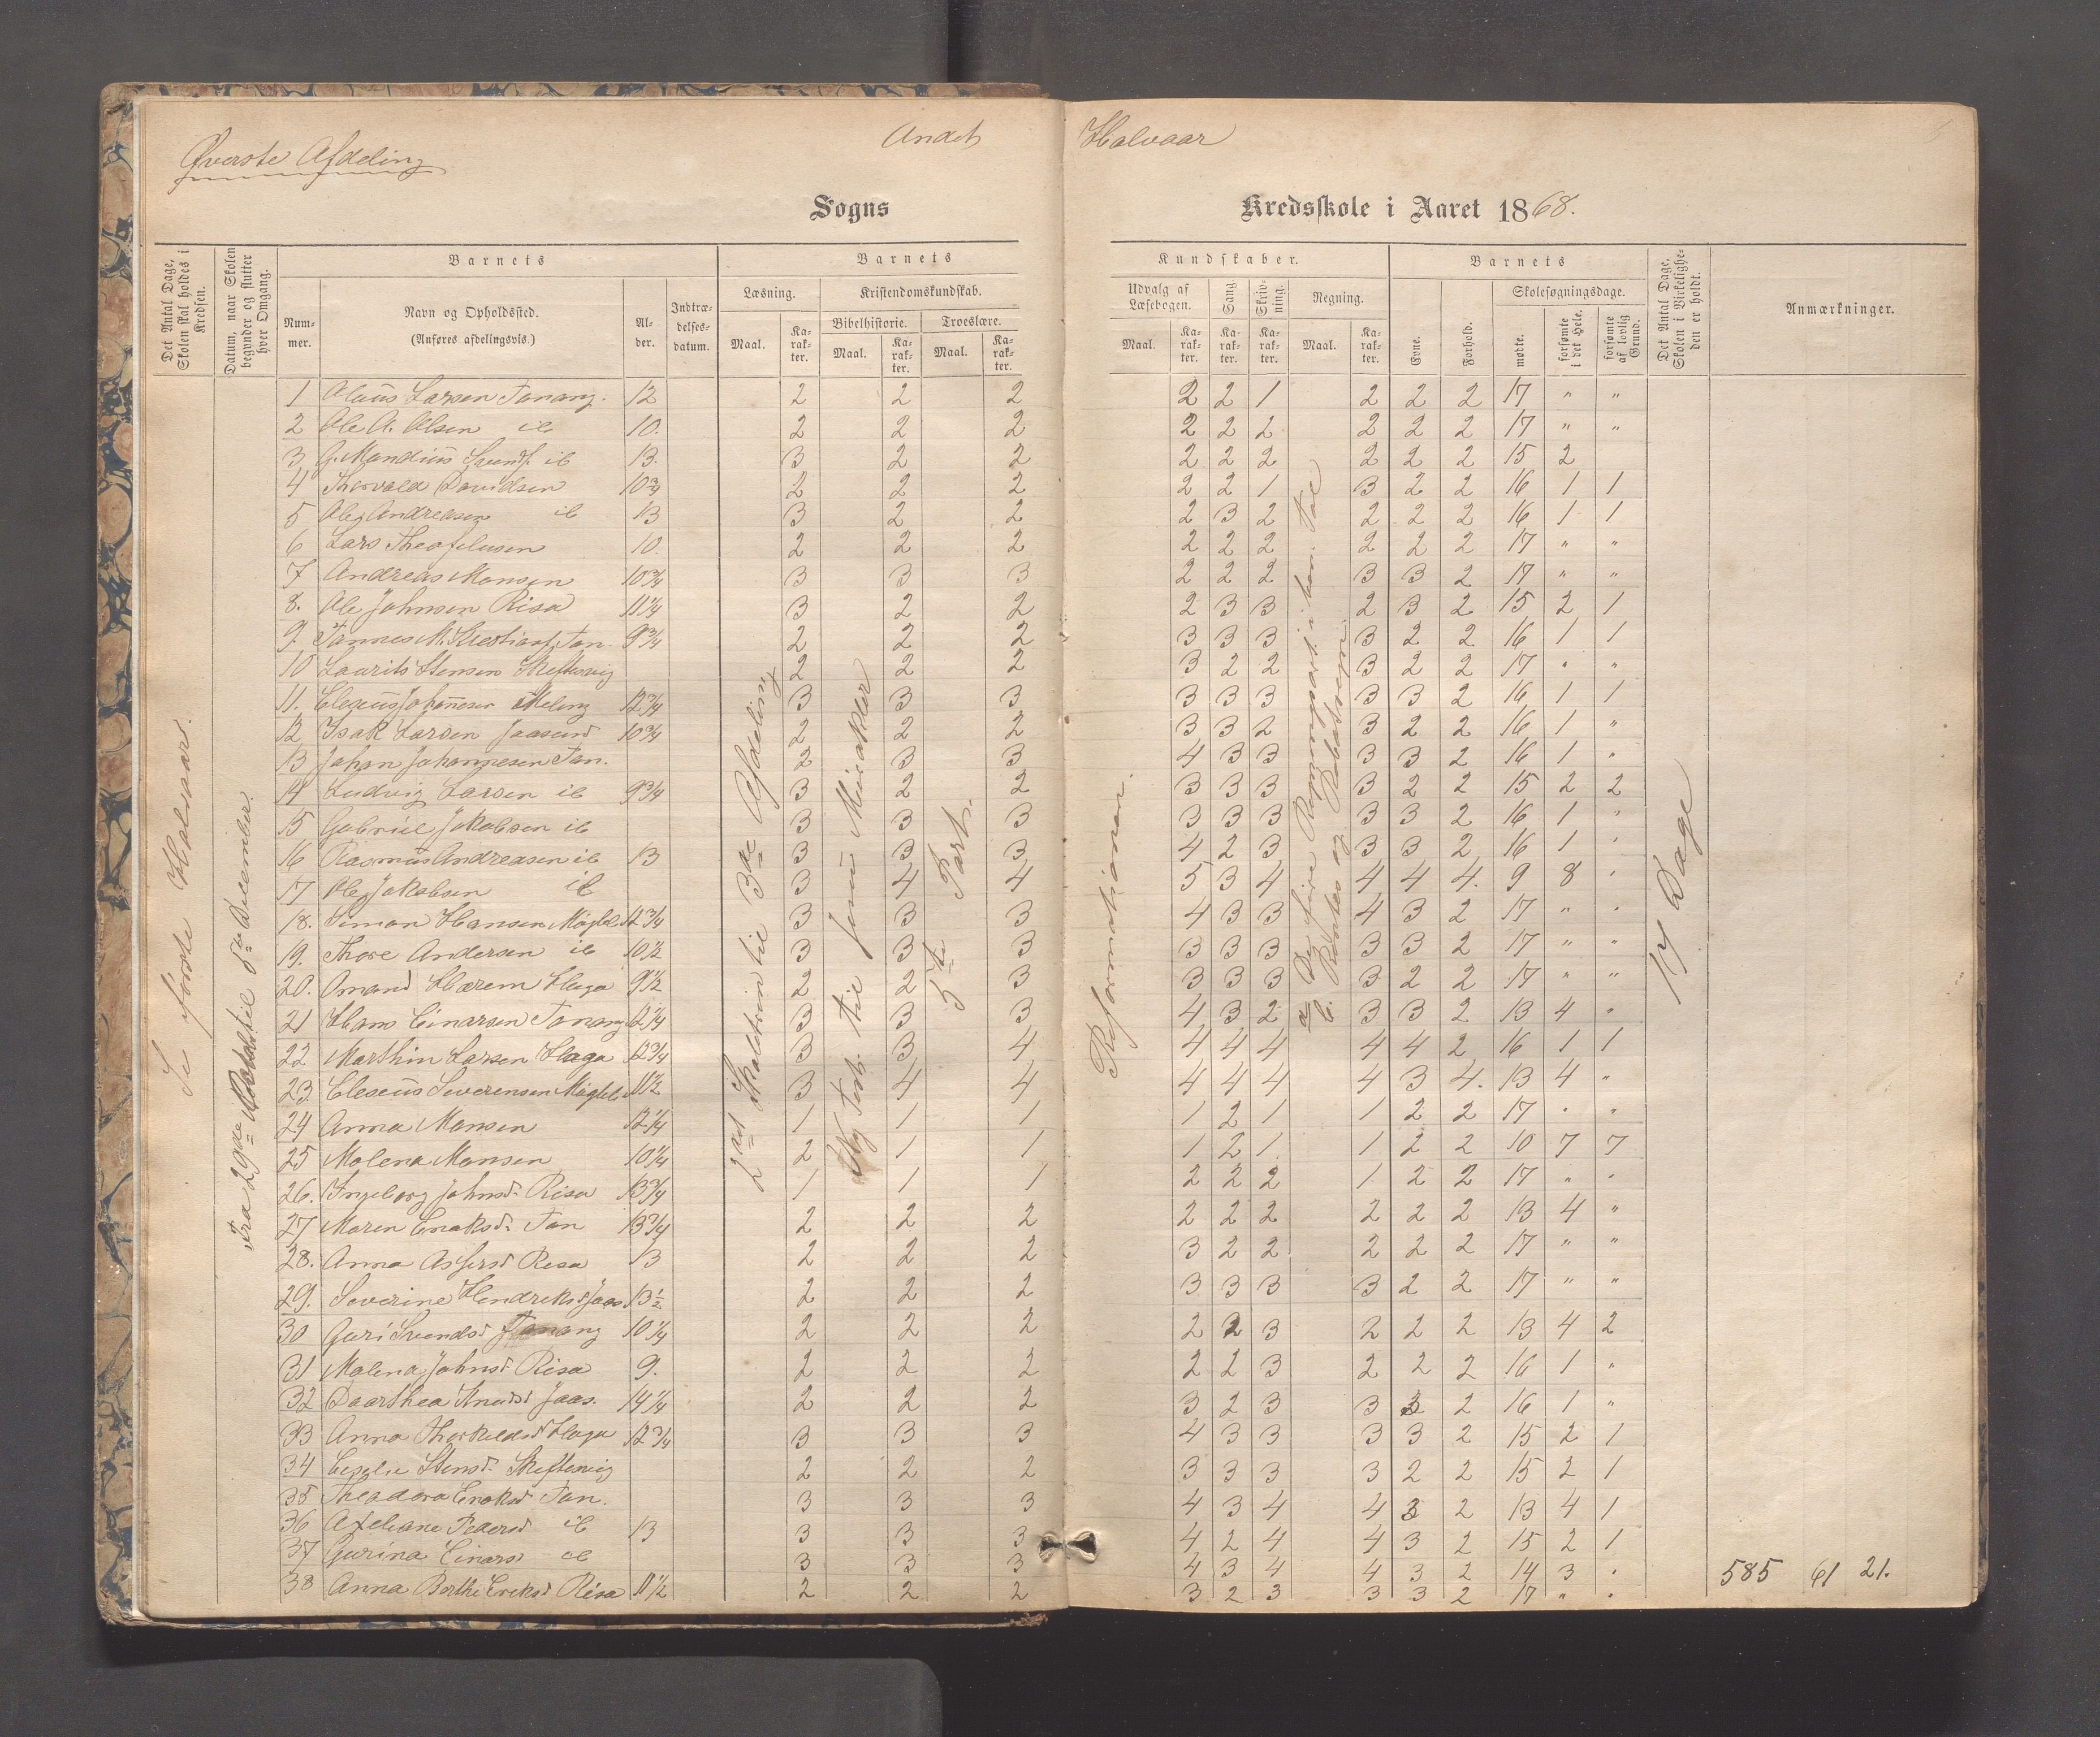 Øverste Afdeling
Andet Halvaar
Sogns Kredsskole i Aaret 1868.
Det Antal Dage, Skolen skal holdes i Kredsen.
Datum, naar Skolen begynder og slutter hver Omgang.
Barnets
Nummer.
Navn og Opholdssted.
(Anføres afdelingsvis.)
Alder.
Indtrædelsesdatum.
Barnets Kundskaber.
Læsning.
Maal.
Karakter.
Kristendomskundskab.
Bibelhistorie.
Maal.
Karakter.
Troeslære.
Maal.
Karakter.
Udvalg af Læsebogen.
Maal.
Karakter.
Sang.
Karakter.
Skrivning.
Karakter.
Regning.
Maal.
Karakter.
Barnets
Evne.
Forhold.
Skolesøgningsdage.
mødte.
forsømte i det Hele.
forsømte af lovlig Grund.
Det Antal Dage, Skolen i Virkeligheden er holdt.
Anmærkninger.
Se første Halvaar.
Fra 29de til 5te December.
2det Skoletrin til 3de Afdeling
Ny Test. til Jesu Mirakler
5te Part.
Reformationen.
a De fire Regningsart. i ben. Tal
b. Rentes og Rabatregn.
17 Dage
1 Olaus Larsen Tanang. 12 2 2 2 2 2 1 2 2 2 17 " "
2 Ole A. Olsen ib 10. 2 2 2 2 2 2 2 2 2 17 " "
3 G. Mandius Svends. ib 13. 3 2 2 2 2 2 2 2 2 15 2
4 Thorvald Davidsen 10¾ 2 2 2 2 2 1 3 2 2 16 1 1
5 Ole Andreasen ib 13 3 2 2 2 3 2 2 2 2 16 1 1
6 Lars Theofilusen 10. 2 2 2 2 2 2 2 2 2 17 " "
7 Andreas Monsen 10¾ 3 3 3 2 2 2 3 3 2 17 " "
8. Ole Johnsen Risa 11¼ 3 2 2 2 3 3 2 3 2 15 2 1
9. Tønnes M. Kristians. Tan. 9¾ 2 2 2 3 3 3 3 2 2 16 1 1
10 Laurits Stensen Skeftesvig 2 2 2 3 2 2 3 2 2 17 " "
11. Eleseus Johannesen Meling 12¾ 3 3 3 3 3 3 3 3 2 16 1 1
12 Isak Larsen Jaasund 10¾ 2 2 2 3 3 2 3 2 2 16 1 "
13 Johan Johannesen Tan. 2 3 3 4 3 3 3 3 2 16 1 "
14 Ludvig Larsen ib 9¾ 3 2 2 3 3 3 3 2 2 15 2 2
15 Gabriel Jakobsen ib 3 3 3 3 3 3 3 3 2 16 1 "
16 Rasmus Andreasen ib 13 3 3 3 4 2 3 3 3 2 16 1 "
17 Ole Jakobsen ib 3 4 4 5 3 4 4 4 4. 9 8 "
18. Simon Hansen Møgleb. 12¾ 3 3 3 4 3 3 4 3 2 17 " "
19. Thore Andersen ib 10½ 3 3 3 3 3 3 3 3 2 17 " "
20. Omund Harem Haga 9½ 2 2 3 3 3 3 3 2 2 17 " "
21 Hans Einarsen Tanang 12¼ 3 3 3 4 3 2 3 3 2 13 4 "
22 Marthin Larsen Haga 12¾ 3 3 4 4 4 4 4 4 2 16 1 1
23 Eleseus Severensen Møgleb. 11½ 3 4 4 4 4 4 4 3 4. 13 4 "
24 Anna Monsen 12¼ 1 1 1 1 2 1 1 2 2 17 " "
25 Malena Monsen 10¼ 2 1 1 1 2 1. 1 2 2 10 7 7
26. Ingeborg Johnsd. Risa 13¾ 1 1 1 2 2 2 1 2 2 17 " "
27 Maren Enoksd. Tan 13¾ 2 2 2 2 2 2 2 2 2 13 4 "
28. Anna Asfersd. Risa 13 2 2 2 3 2 2 2 2 2 17 " "
29. Severine Hendriksd Jaas. 13½ 2 2 2 3 3 3 3 2 2 17 " "
30 Guri Svendsd Tanang 10¼ 2 2 2 2 2 3 2 2 2 13 4 2
31 Malena Johnsd. Risa 9. 2 2 2 2 2 3 2 2 2 16 1 "
32 Daarthea Knudsd Jaas. 14¼ 2 2 2 3 2 3 3 3 2 16 1 "
33 Anna Thorkildsd Haga 12¾ 3 3 3 4 3 3 3 3 2 15 2 1
34 Stensd. Skeftesvig 2 2 2 3 3 3 3 2 2 15 2 1
35 Theodora Enoksd Tan. 3 3 3 4 3 4 4 3 2 13 4 1
36 Axeliane Pedersd ib 13 3 3 3 4 2 4 4 3 2 15 2 1
37 Gurina Einarsd ib 3 3 3 4 3 4 4 3 2 14 3 "
38 Anna Berthe Eriksd Risa 11½ 2 2 2 3 2 3 3 3 2 17 " "
585 61 21.